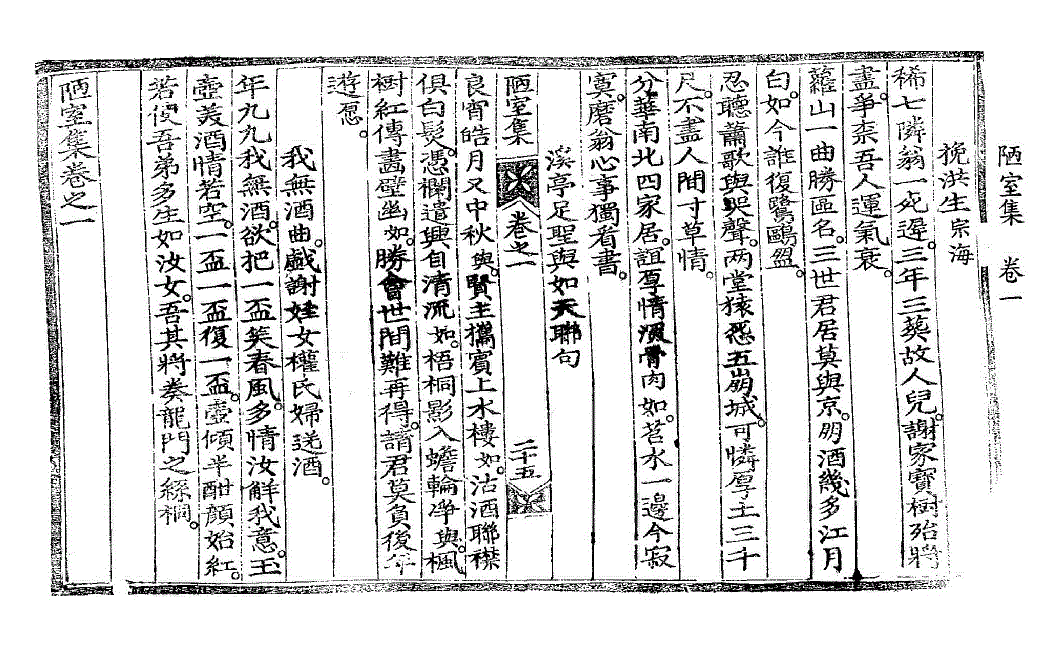 陋室集　卷一
挽洪生宗海
稀七隣翁一死遲。三年三葬故人兒。謝家寶樹殆將
盡。爭柰吾人運氣衰。
蘿山一曲勝區名。三世君居莫與京。朋酒幾多江月
白。如今誰復鷺鷗盟。
忍聽簫歌與哭聲。两堂猿怨五崩城。可憐厚土三千
尺。不盡人間寸草情。
分華南北四家居。誼厚情深骨肉如。苕水一邊今寂
寞。磨翁心事獨看書。
溪亭足聖與如天聯句
陋室集　卷之一　二十五
良宵皓月又中秋。與。賢主携賓上水樓。如。沽酒聯襟
俱白髮。憑欄遣興自清流。如。梧桐影入蟾輪淨。與。楓
樹紅傳畵壁幽。如。勝會世間難再得。請君莫負後年
遊。
我無酒曲。戱謝姪女權氏婦送酒。
年九九我無酒。欲把一盃笑春風。多情汝解我意。玉
壺美酒情若空。一盃一盃復一盃。壺傾半酣顔始紅。
若使吾弟多生如汝女。吾其將奏龍門之絲桐。
陋室集卷之一